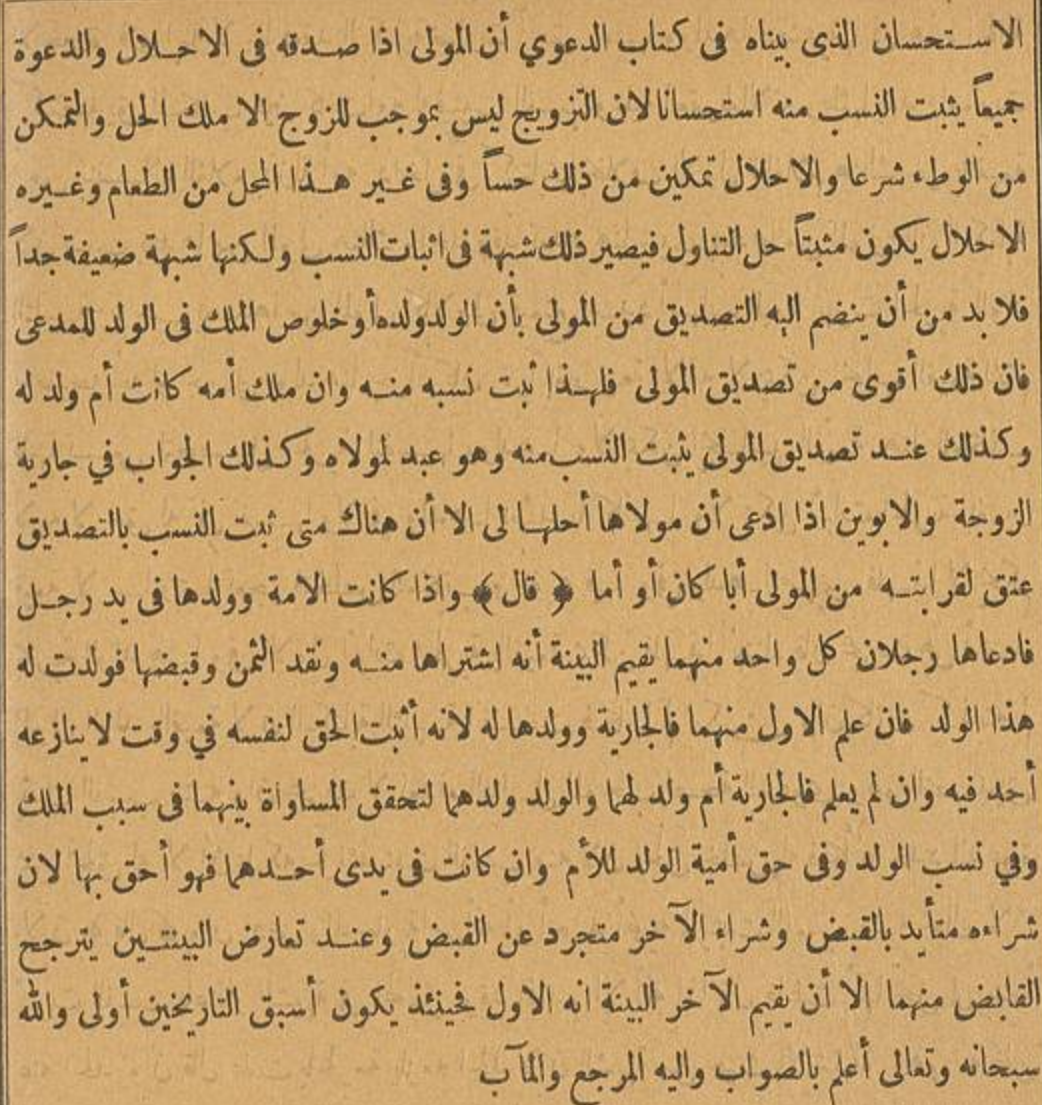 الاستحسان الذى بيناه فى كتاب الدعوي أن المولى اذا صدقه فى الاحلال والدعوة
جميعاً يثبت النسب منه استحسانا لان التزويج ليس بموجب للزوج الا ملك الحل والتمكن
من الوطء شرعا والاحلال تمكين من ذلك حساً وفى غير هذا المحل من الطعام وغيره
الاحلال يكون مثبتاً حل التناول فيصير ذلك شبهة فى اثبات النسب ولكنها شبهة ضعيفة جداً
فلا بد من أن ينضم اليه التصديق من المولى بأن الولد ولده أو خلوص الملك فى الولد للمدعى
فان ذلك أقوى من تصديق المولى فلهذا ثبت نسبه منه وان ملك أمه كانت أم ولد له
وكذلك عند تصديق المولى يثبت النسب منه وهو عبد لمولاه وكذلك الجواب في جارية
الزوجة والابوين اذا ادعى أن مولاها أحلها لى الا أن هناك متى ثبت النسب بالتصديق
عتق لقرابته من المولى أبا كان أو أما ﴿ قال ﴾ واذا كانت الامة وولدها فى يد رجل
فادعاها رجلان كل واحد منهما يقيم البينة أنه اشتراها منه ونقد الثمن وقبضها فولدت له
هذا الولد فان علم الاول منهما فالجارية وولدها له لانه أثبت الحق لنفسه في وقت لا ينازعه
أحد فيه وان لم يعلم فالجارية أم ولد لهما والولد ولدهما لتحقق المساواة بينهما فى سبب الملك
وفي نسب الولد وفى حق أمية الولد للأم وان كانت فى يدى أحدهما فهو أحق بها لان
شراءه متأيد بالقبض وشراء الآخر متجرد عن القبض وعند تعارض البينتين يترجح
القابض منهما الا أن يقيم الآخر البينة انه الاول فحينئذ يكون أسبق التاريخين أولى والله
سبحانه وتعالى أعلم بالصواب واليه المرجع والمآب